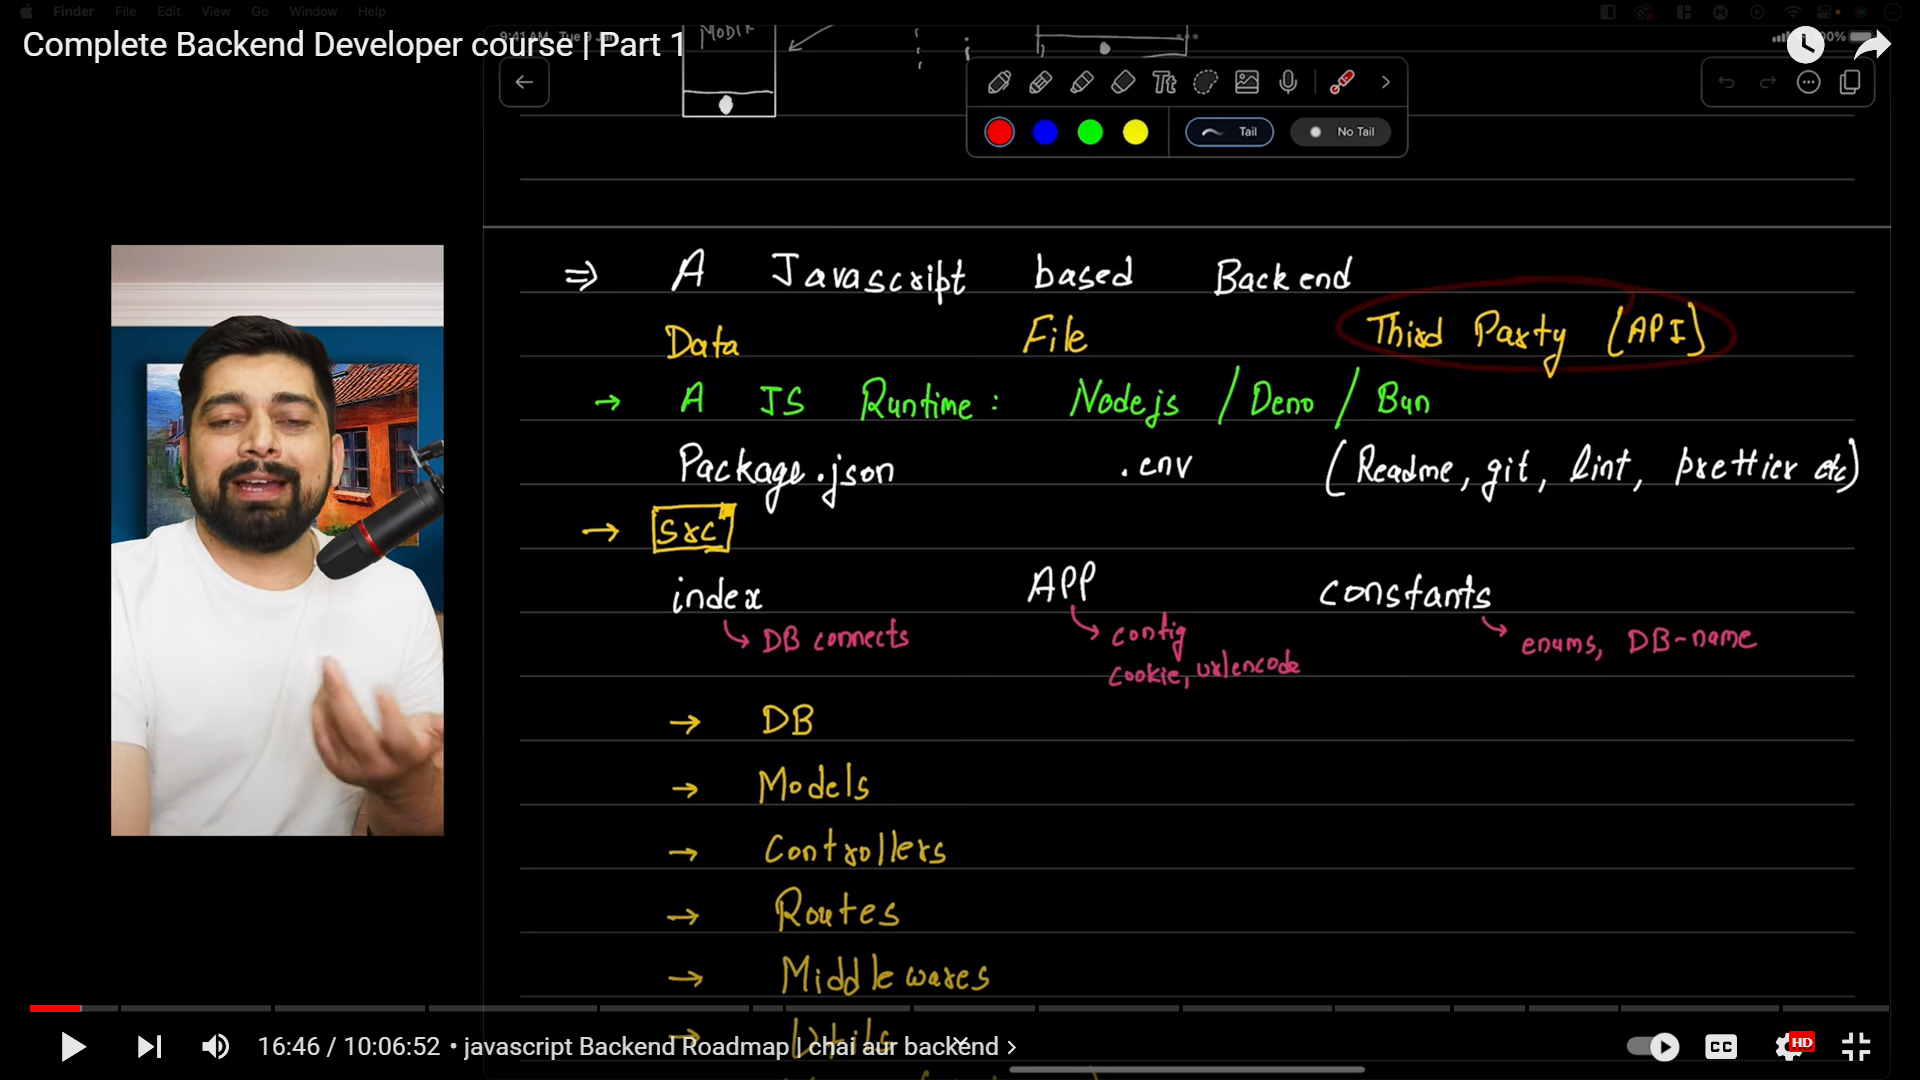 Finder File Edit View Go Window Help
Complete Backend Developer course | Part 1
9:41 AM Tue 9 J
100%
Tt
Tail
No Tail
⇒ A Javascript based Backend
Data File Third Party (API)
→ A JS Runtime: Nodejs / Deno / Bun
Package.json .env (Readme, git, lint, prettier etc)
→ src
index APP constants
DB connects config enums, DB-name
cookie, urlencode
→ DB
→ Models
→ Controllers
→ Routes
→ Middlewares
→ Utils
16:46 / 10:06:52 • javascript Backend Roadmap | chai aur backend >
CC
HD